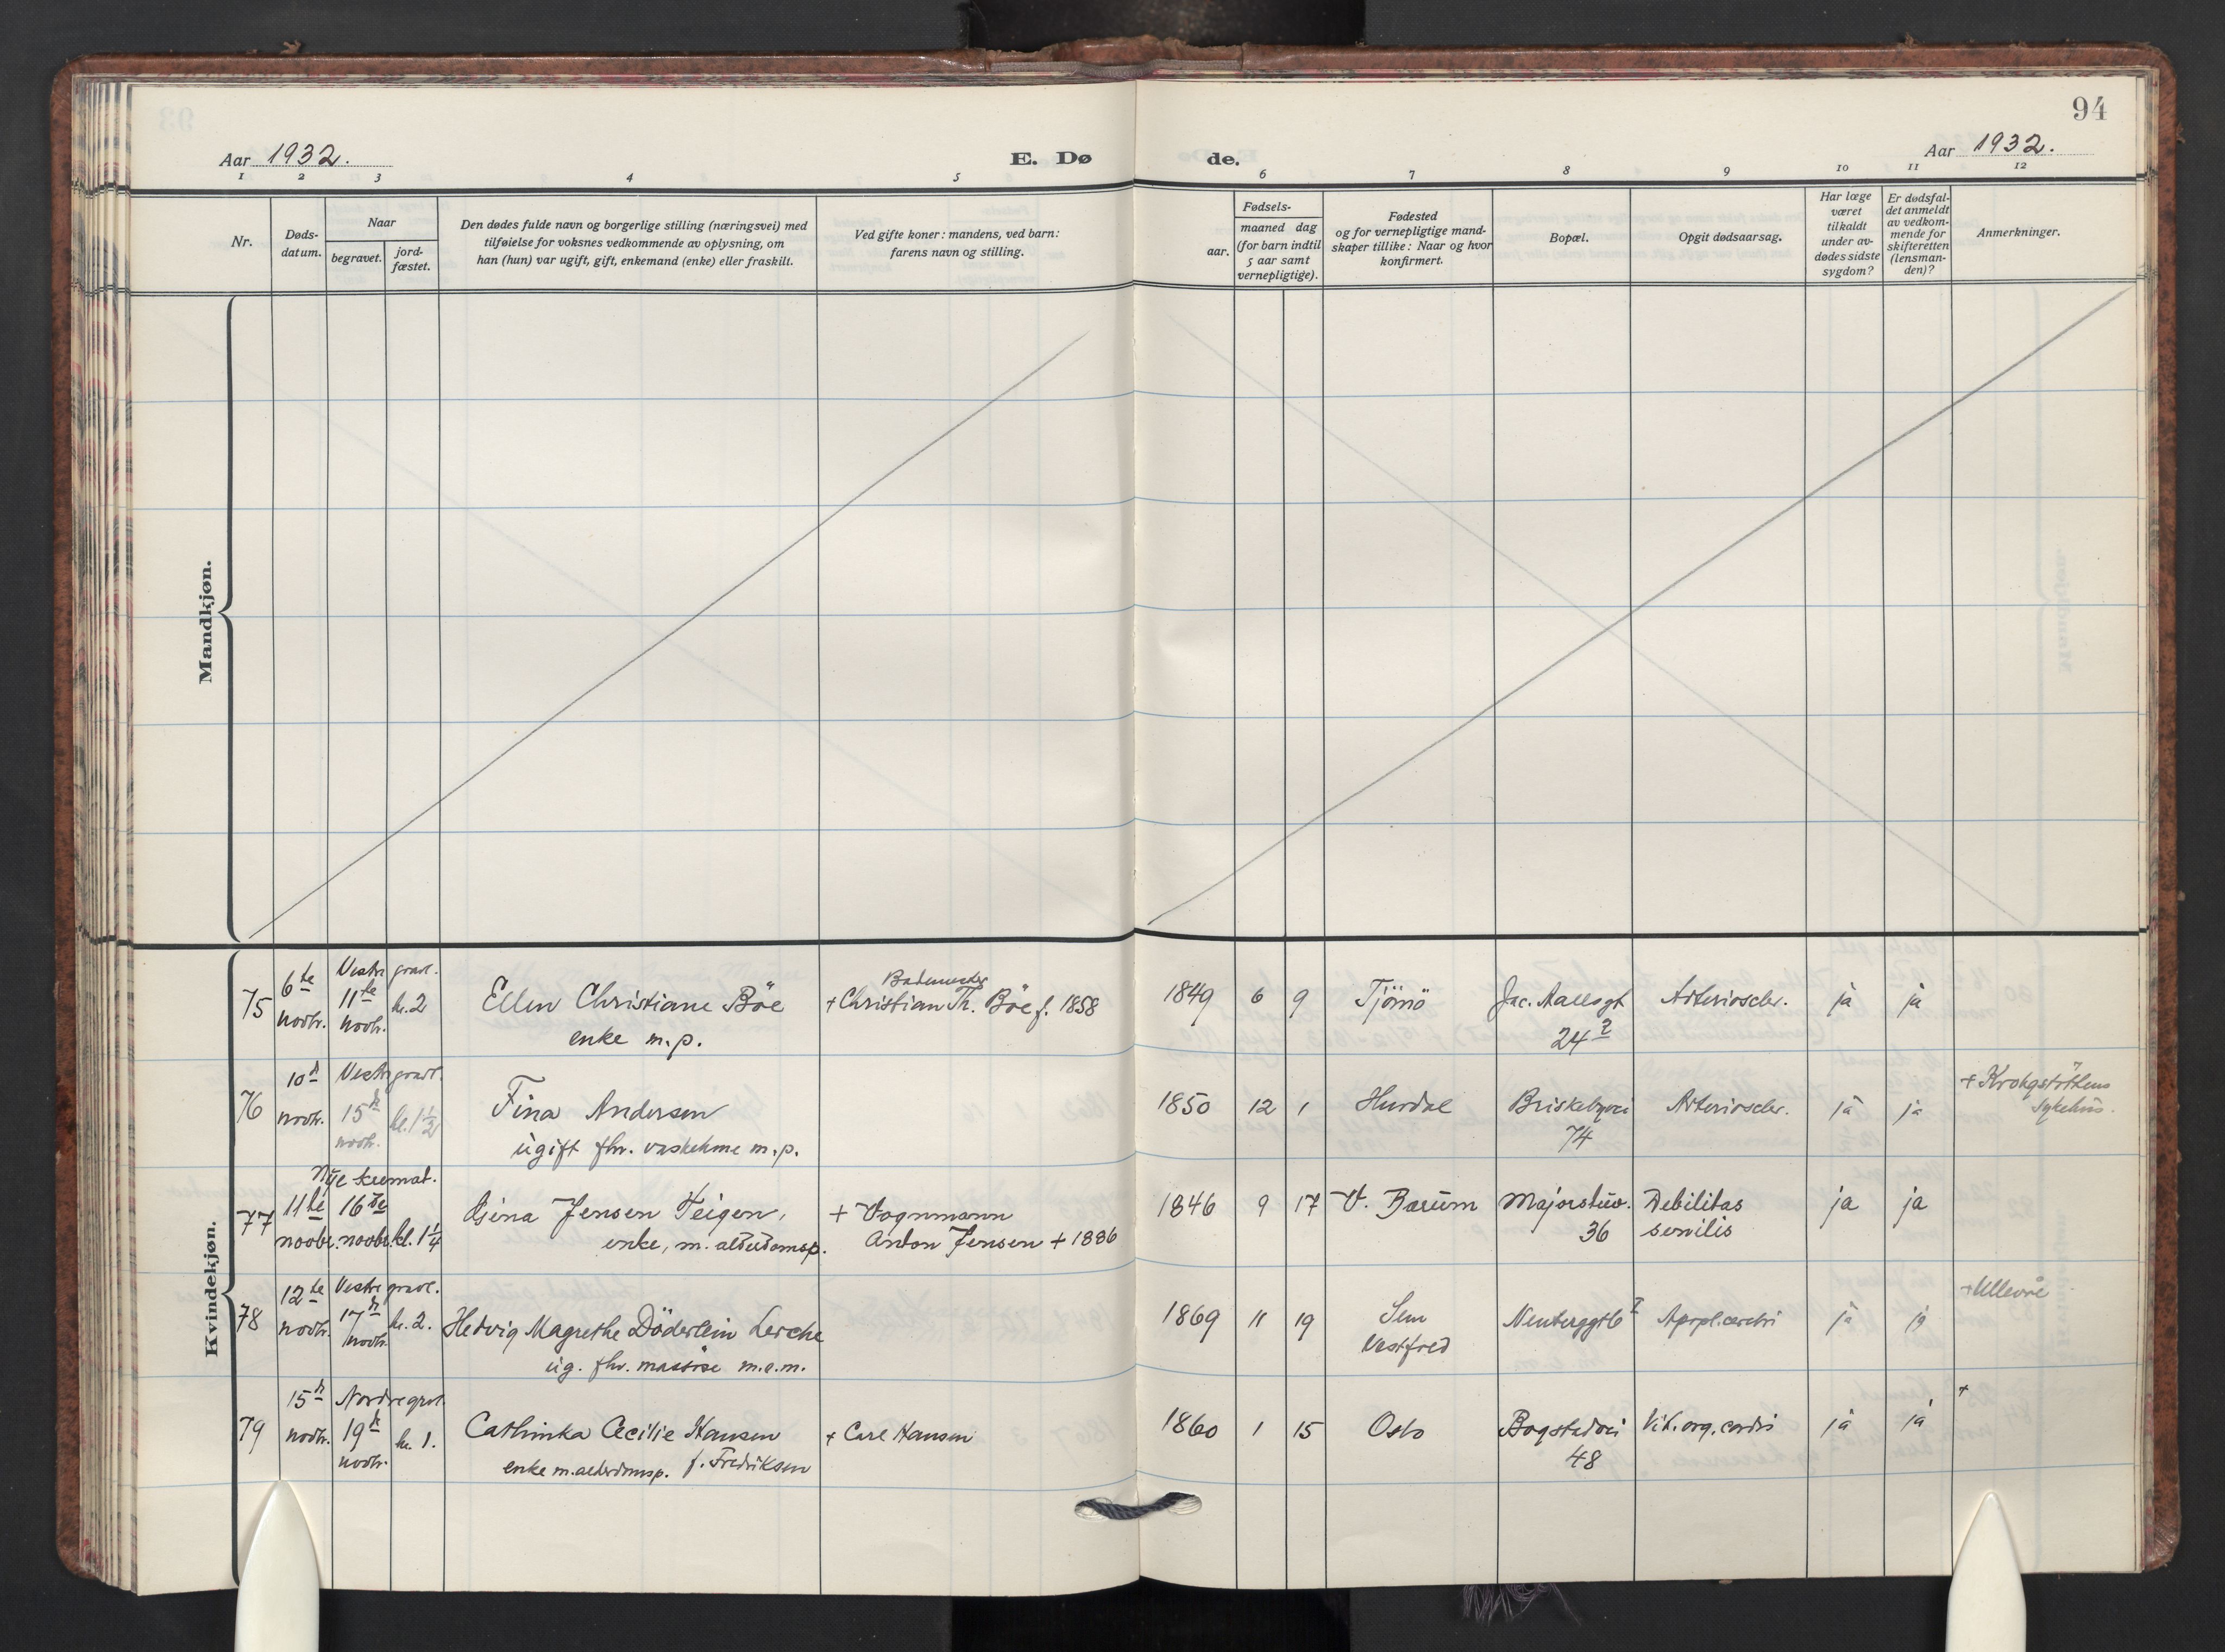 94
Aar 1932.
E. Dø
de.
Aar 1932.
1 2 3 4 5 6 7 8 9 10 11 12
Nr.
Døds-
datum.
Naar
begravet.
jord-
fæstet.
Den dødes fulde navn og borgerlige stilling (næringsvei) med
tilføielse for voksnes vedkommende av oplysning, om
han (hun) var ugift, gift, enkemand (enke) eller fraskilt.
Ved gifte koner: mandens, ved barn:
farens navn og stilling.
Fødsels-
aar.
maaned dag
(for barn indtil
5 aar samt
vernepligtige).
Fødested
og for vernepligtige mand-
skaper tillike: Naar og hvor
konfirmert.
Bopæl.
Opgit dødsaarsag.
Har læge
været
tilkaldt
under av-
dødes sidste
sygdom?
Er dødsfal-
det anmeldt
av vedkom-
mende for
skifteretten
(lensman-
den)?
Anmerkninger.
Mandkjøn.
Kvindekjøn.
75
6te
novbr.
Vestre gravl.
11te
novbr.
kl. 2
Ellen Christiane Böe
enke m.p.
Bademester
+ Christian Th. Böe f. 1858
1849 6 9
Tjömö
Jac. Aallsgt
24
Arterioscler.
ja ja
76
10de
novbr.
Vestre gravl.
15de
novbr.
kl. 1½
Fina Andersen
ugift fhv. vaskekone m.p.
1850 12 1
Hurdal
Briskebyvei
74
Arterioscler.
ja ja
+ Krohgstöttens
sykehus.
77
11te
novbr.
Nye kremat.
16de
novbr.
kl. 1¼
Gina Jensen Teigen,
enke, m. alderdomsp.
+ Vognmann
Anton Jensen + 1886
1846 9 17
V. Bærum
Majorstuv.
36
Debilitas
senilis
ja ja
78
12te
novbr.
Vestre gravl.
17de
novbr.
kl. 2.
Hedvig Magrethe Döderlein Lerche
ug. fhv. massøse m.a.m.
1869 11 19
Sem
Vestfold
Apopl. cerebri
ja ja
+ Ullevål
79
15de
novbr.
Nordre grvl.
19de
novbr.
kl. 1.
Cathinka Cecilie Hansen
enke m. alderdomsp. f. Fredriksen
+ Carl Hansen
1860 1 15
Oslo
Bogstadvei
48
Vit. org. cordis
ja ja
+